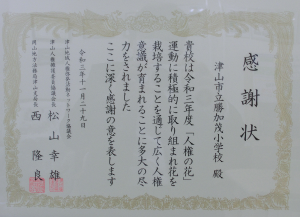 感謝状
津山市立勝加茂小学校 殿
貴校は令和三年度「人権の花」
運動に積極的に取り組まれ花を
栽培することを通じて広く人権
意識が育まれることに多大の尽
力をされました
ここに深く感謝の意を表します
令和三年十一月二十九日
津山地域人権啓発活動ネットワーク協議会
津山人権擁護委員協議会長 松山幸雄
岡山地方法務局津山支局長 西隆良